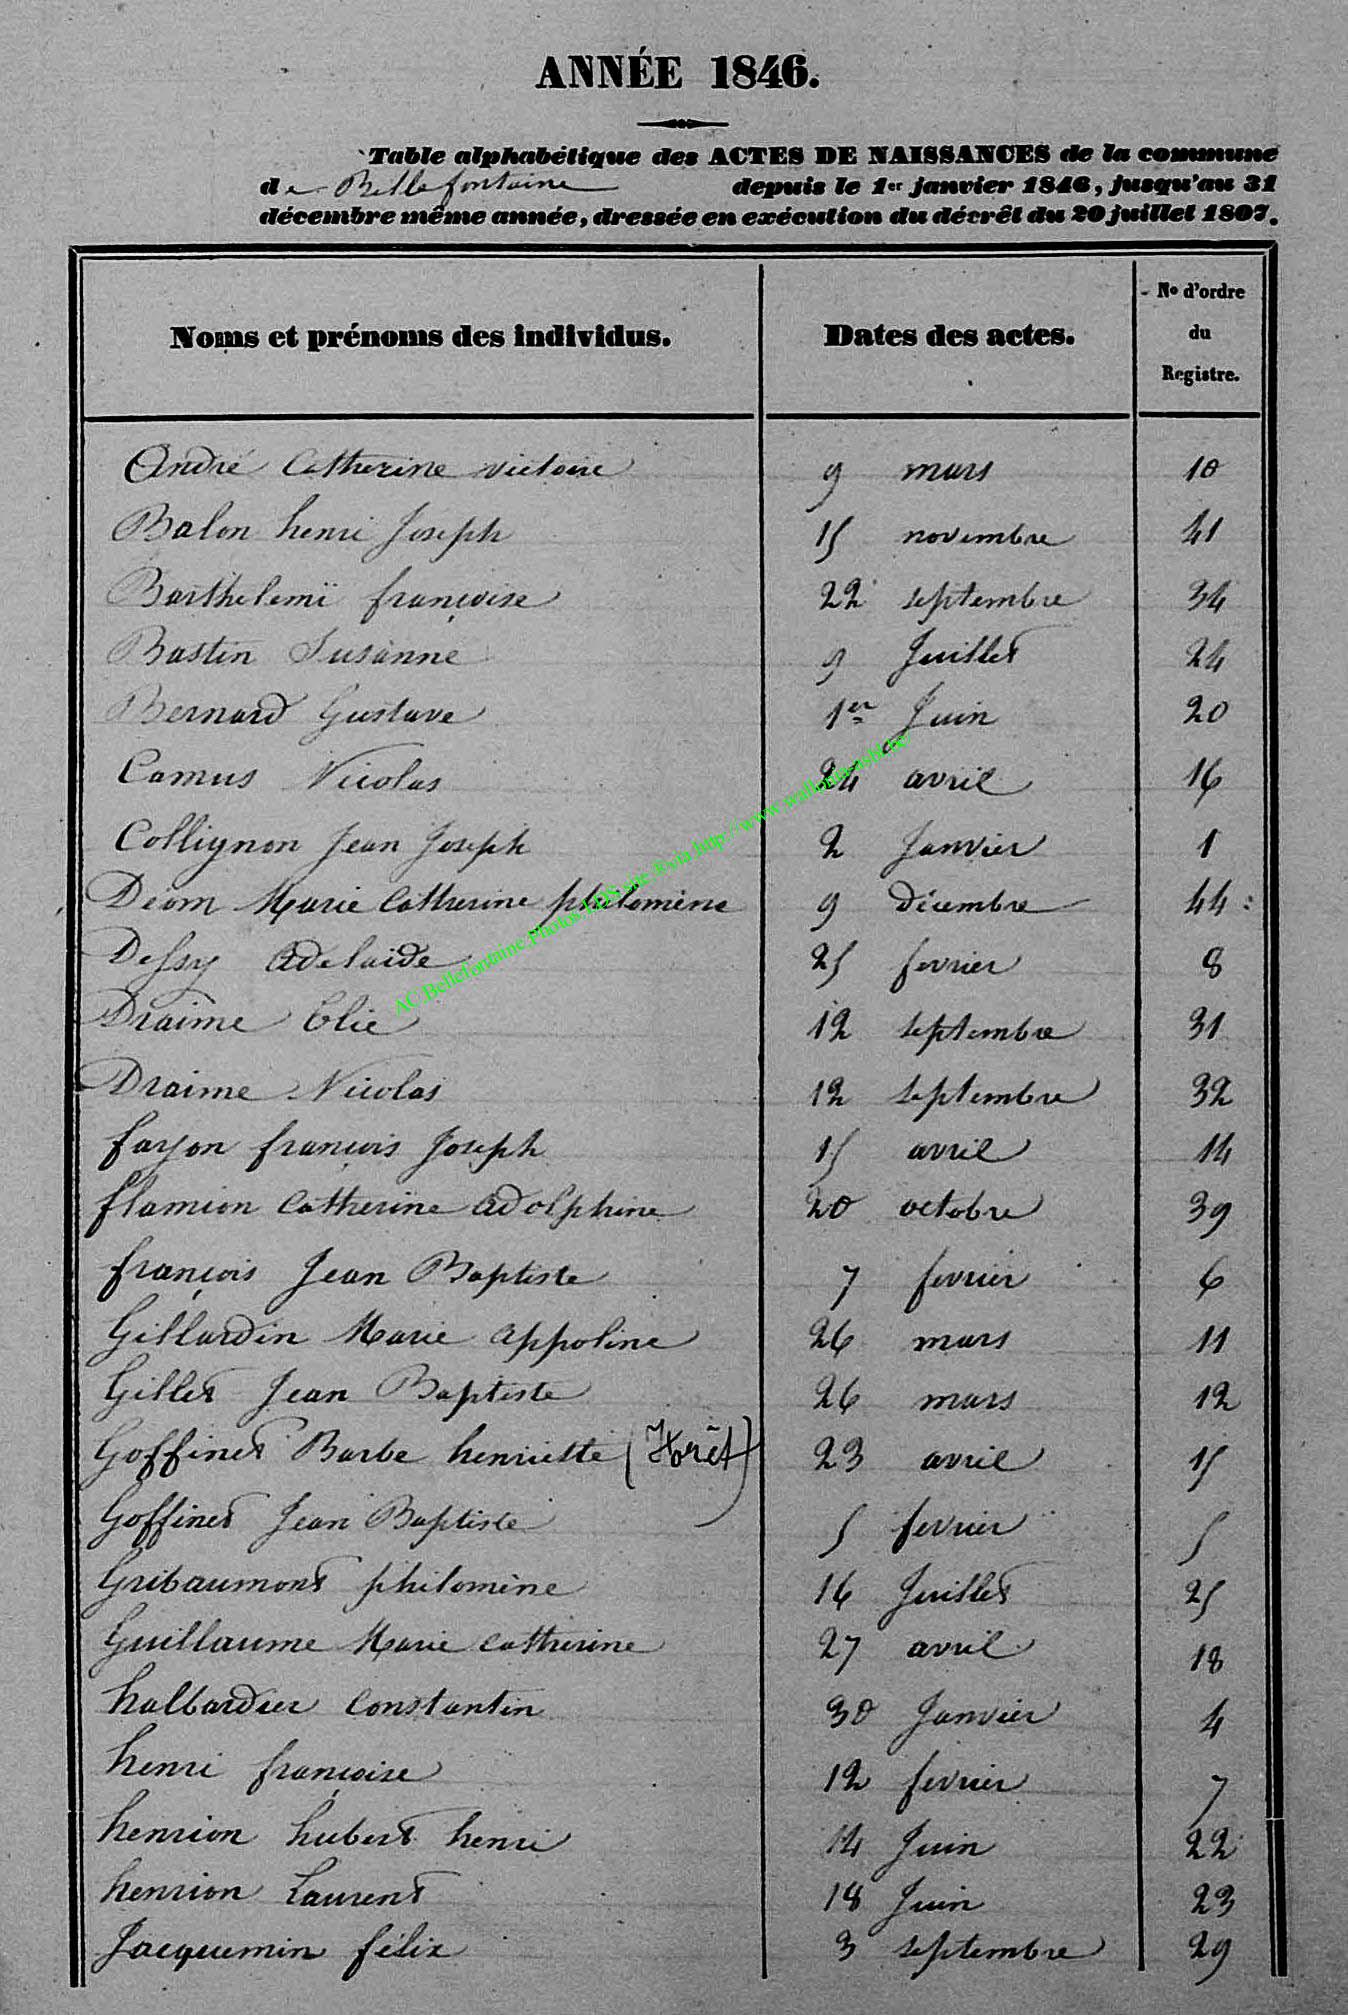 ANNÉE 1846.
Table alphabétique des ACTES DE NAISSANCES de la commune
de Bellefontaine depuis le 1er janvier 1846, jusqu'au 31
décembre même année, dressée en exécution du décrêt du 20 juillet 1807.
Noms et prénoms des individus. Dates des actes. No d'ordre du Registre.
André Catherine victoire 9 mars 10
Balon henri Joseph 15 novembre 41
Barthelemï françoise 22 septembre 34
Bastin Susanne 9 Juillet 24
Bernard Gustave 1er Juin 20
Camus Nicolas 24 avril 16
Collignon Jean Joseph 2 Janvier 1
Déom Marie Catherine philomène 9 décembre 44
Dessy Adelaide 25 fevrier 8
Draime Elie 12 septembre 31
Draime Nicolas 12 septembre 32
fayon françois Joseph 15 avril 14
flamion Catherine Adolphine 20 octobre 39
françois Jean Baptiste 7 fevrier 6
Gillardin Marie Appoline 26 mars 11
Gillet Jean Baptiste 26 mars 12
Goffinet Barbe henriette 23 avril 15
Goffinet Jean Baptiste 5 fevrier 5
Gribaumont philomène 16 Juillet 25
Guillaume Marie Catherine 27 avril 18
halbardier Constantin 30 Janvier 4
henri françoise 12 fevrier 7
henrion hubert henri 14 Juin 22
henrion Laurent 18 Juin 23
Jacquemin félix 3 septembre 29